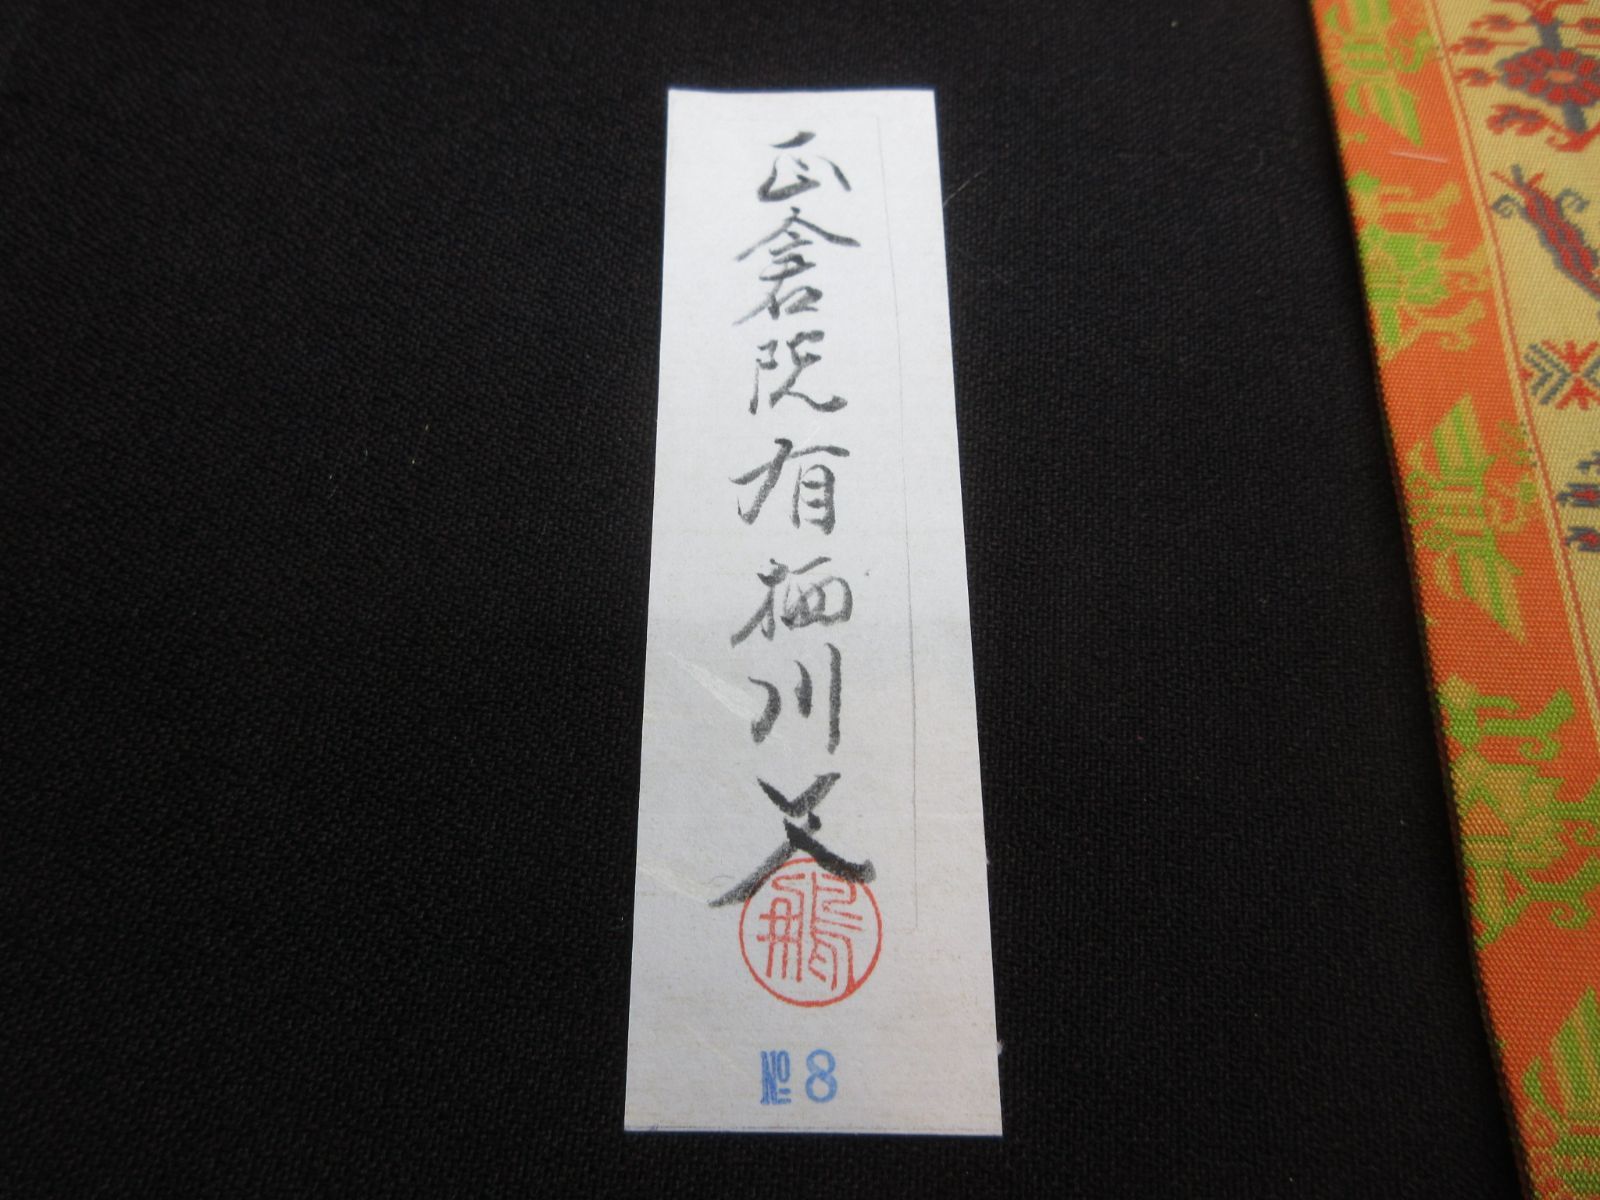 正倉院有栖川文
No 8